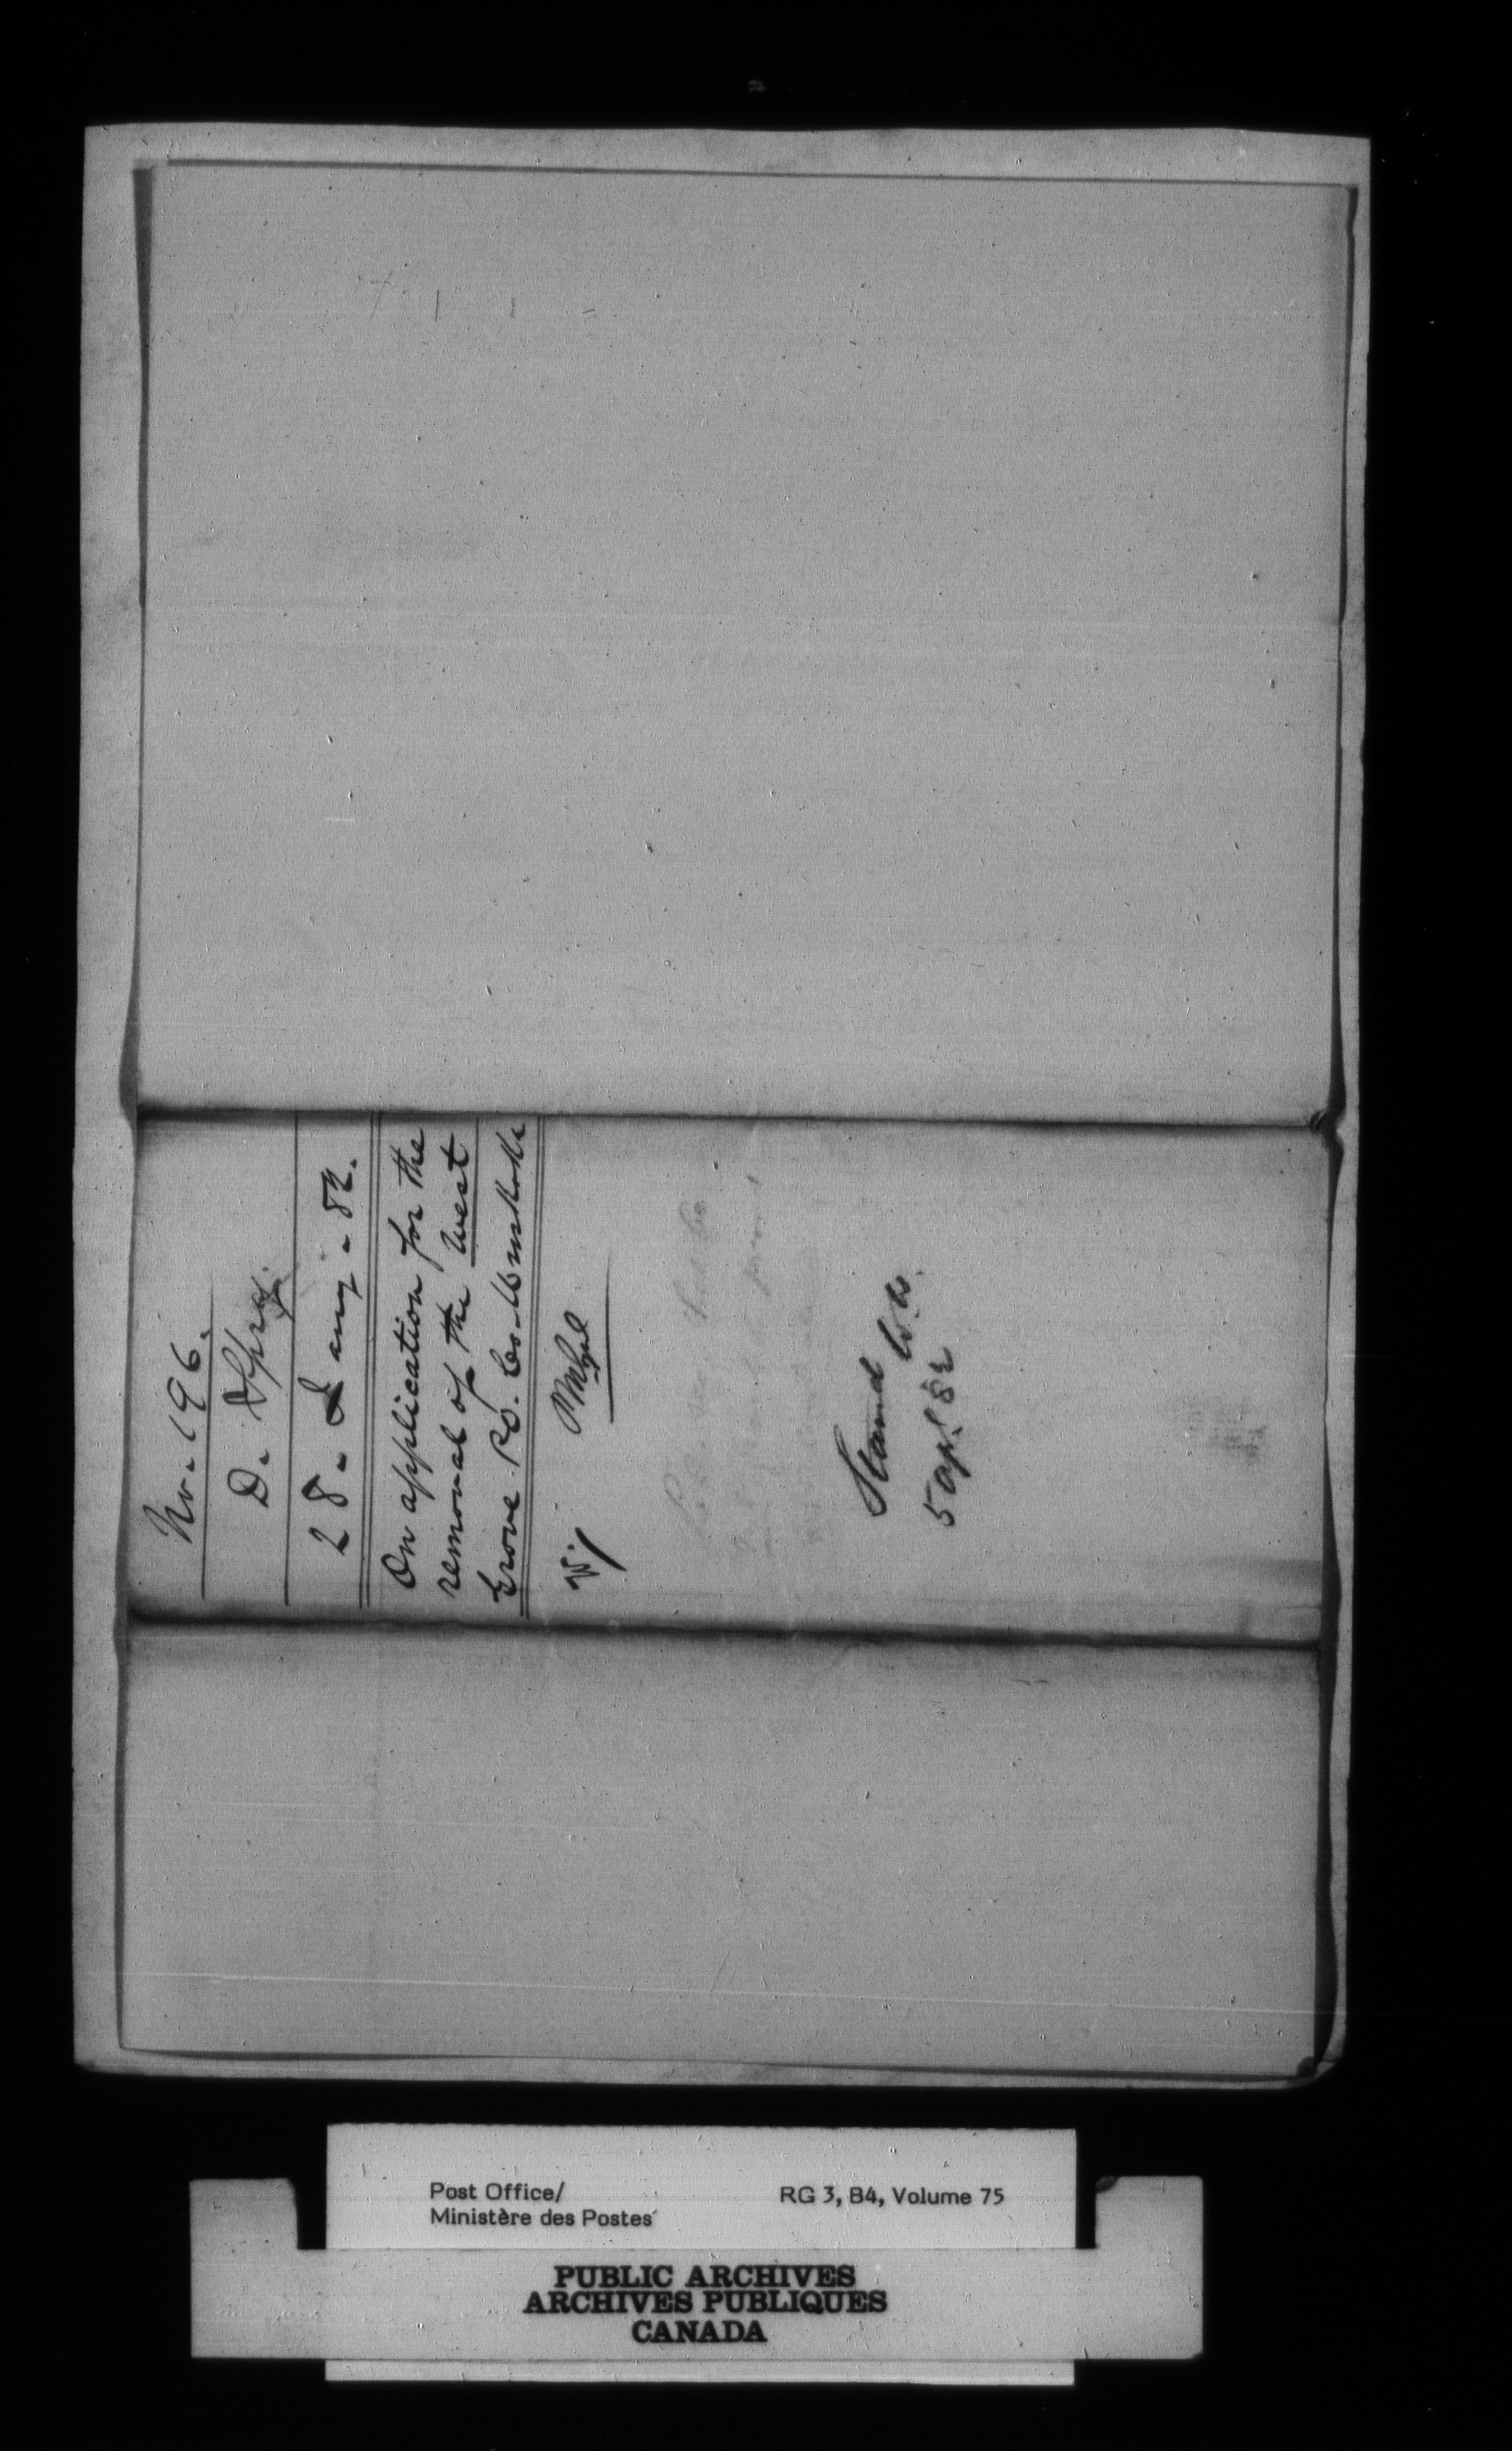 No. 196.
D. Spry.
28. Jany. 82.
On application for the
removal of the West
Grove P.O. Co. Muskoka
PMGnl
Stand W.W.
5 apl. 82
Post Office/
Ministère des Postes
RG 3, B4, Volume 75
PUBLIC ARCHIVES
ARCHIVES PUBLIQUES
CANADA